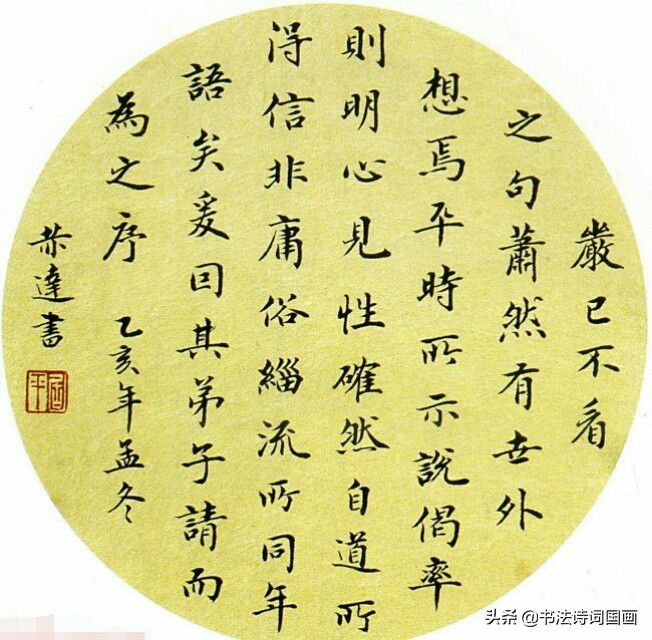 嚴已不看
之句蕭然有世外
想焉平時所示說偈率
則明心見性確然自道所
得信非庸俗緇流所同年
語矣爰因其弟子請而
為之序 乙亥年孟冬
恭達書
头条 @书法诗词国画